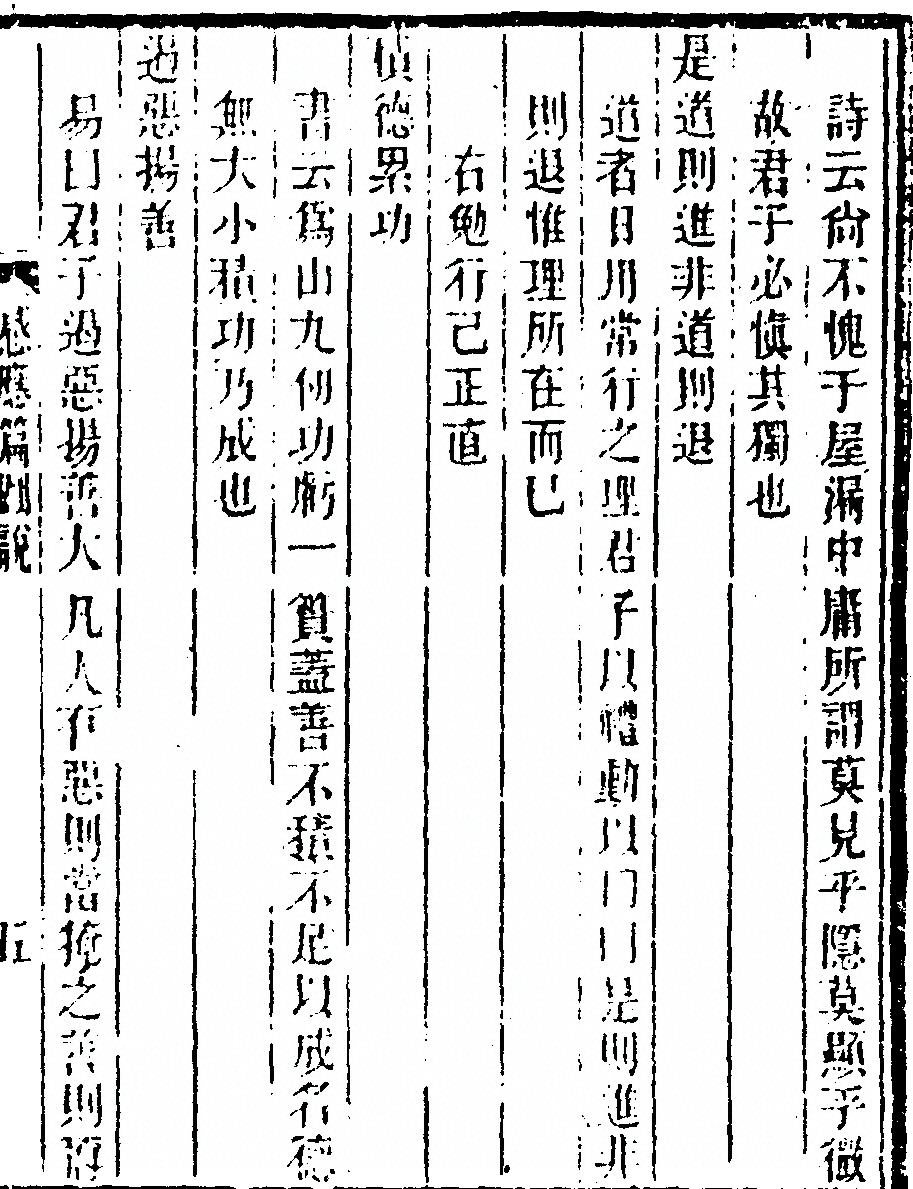 詩云尙不愧于屋漏中庸所謂莫見乎隱莫顯乎微
故君子必愼其獨也
是道則進非道則退
道者日用常行之理君子以動以是則進非
則退惟理所在而已
右勉行己正直
德累功
書云爲山九仞功虧一簣蓋善不積不足以成名德
無大小積功乃成也
遏惡揚善
易曰君子遏惡揚善大凡人有惡則當掩之善則
感應篇說